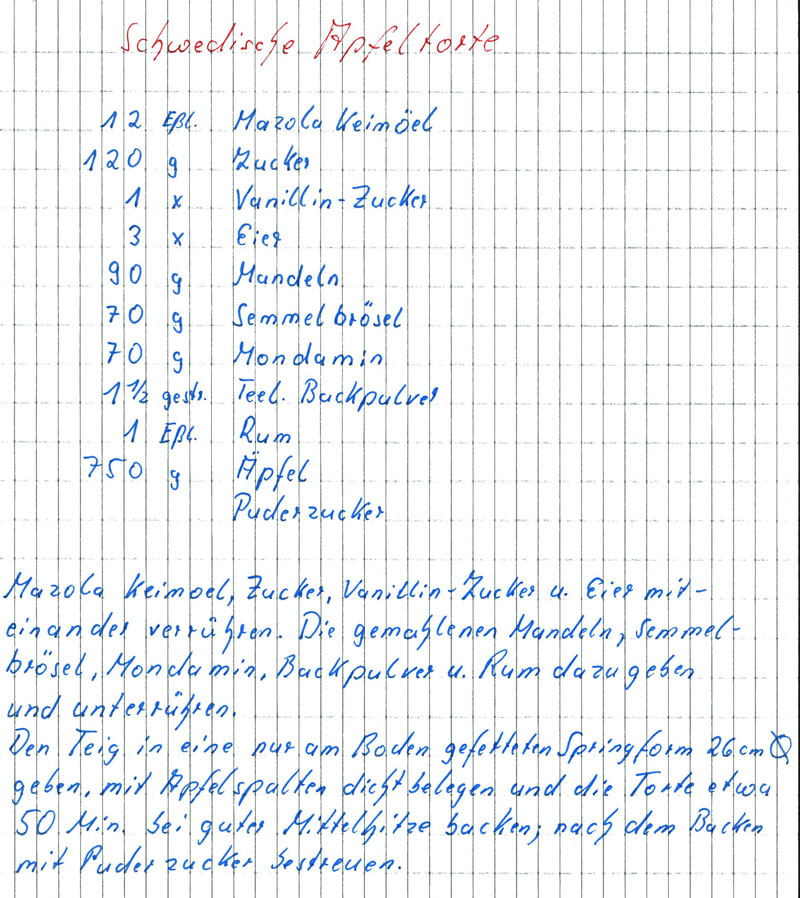 Schwedische Apfeltorte
12 Eßl. Mazola Keimöel
120 g Zucker
1 x Vanillin-Zucker
3 x Eier
90 g Mandeln
70 g Semmelbrösel
70 g Mondamin
1 1/2 gestr. Teel. Backpulver
1 Eßl. Rum
750 g Äpfel
Puderzucker
Mazola Keimoel, Zucker, Vanillin-Zucker u. Eier mit-
einander verrühren. Die gemahlenen Mandeln, Semmel-
brösel, Mondamin, Backpulver u. Rum dazugeben
und unterrühren.
Den Teig in eine nur am Boden gefetteten Springform 26 cm Ø
geben, mit Apfelspalten dicht belegen und die Torte etwa
50 Min. bei guter Mittelhitze backen; nach dem Backen
mit Puderzucker bestreuen.